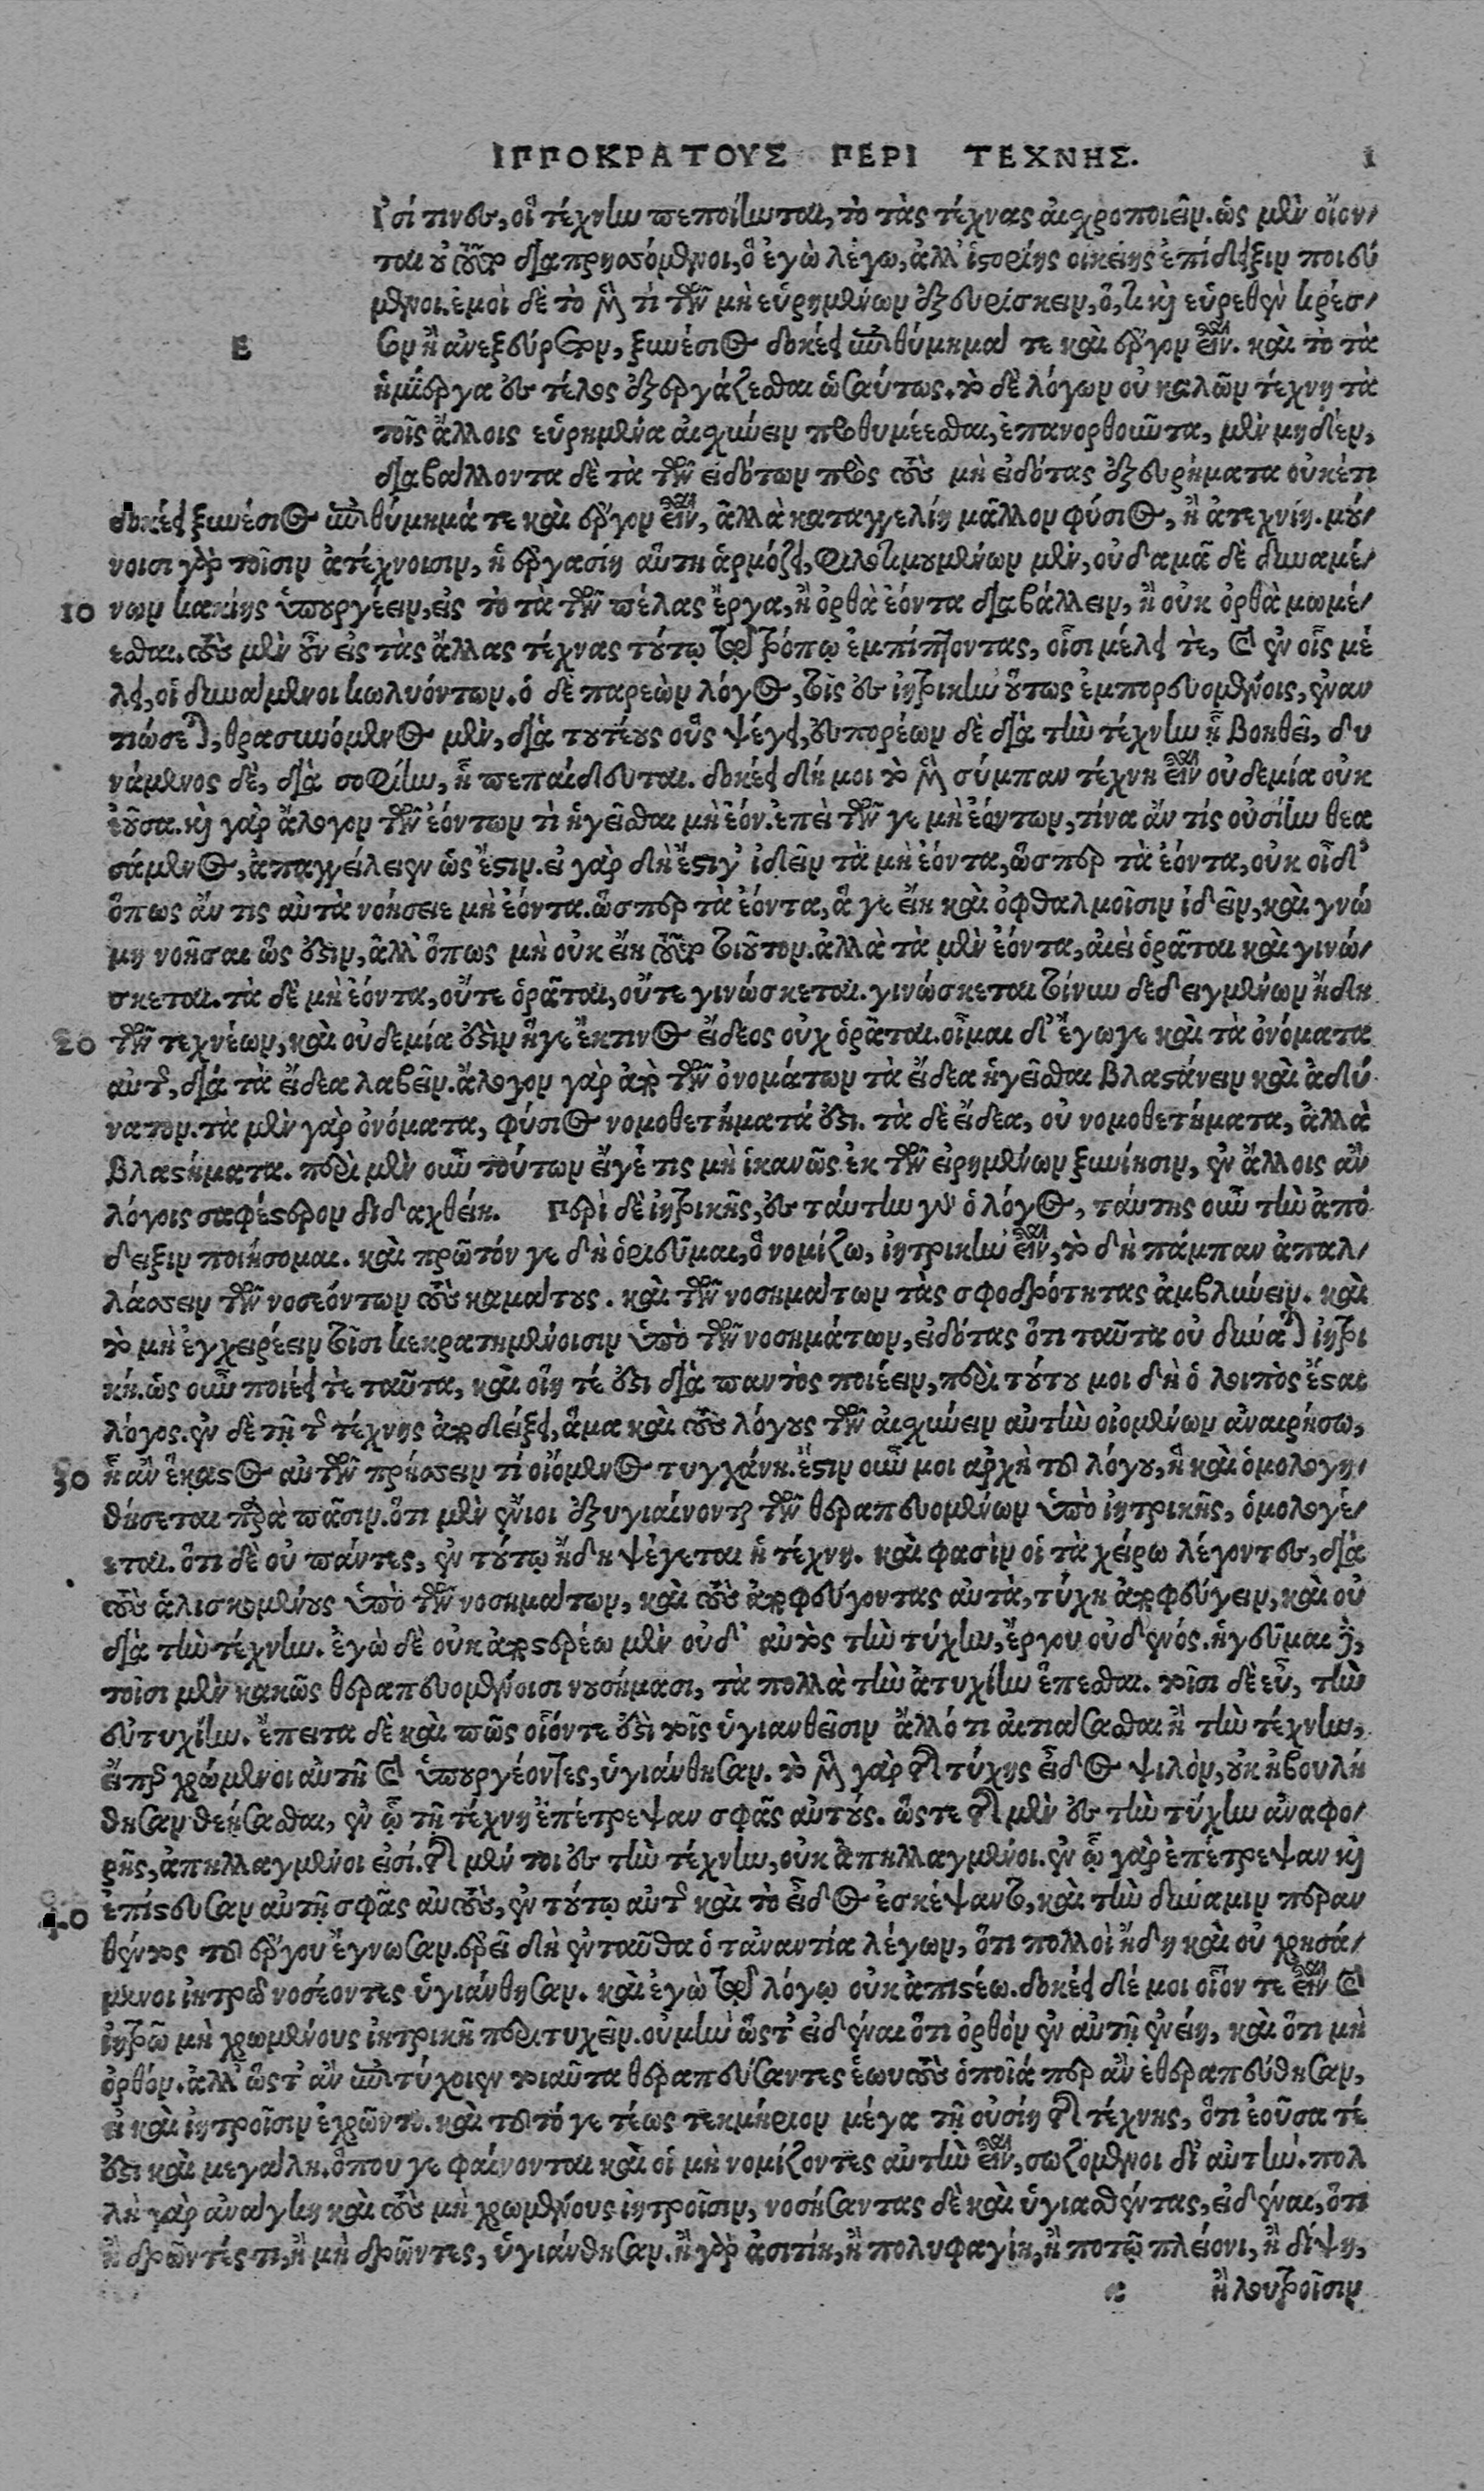 ΙΠΠΟΚΡΑΤΟΥΣ ΠΕΡΙ ΤΕΧΝΗΣ. 1
Ε
Ἰσί τινες, οἳ τέχνην πεποίηνται, τὸ τὰς τέχνας αἰσχροποιεῖν. ὡς μὲν οἴον-
ται οὐ τοῦτο διαπρησσόμενοι, ὃ ἐγὼ λέγω, ἀλλ' ἱστορίης οἰκείης ἐπίδειξιν ποιεύ
μενοι. ἐμοὶ δὲ τὸ μέν τι τῶν μὴ εὑρημένων ἐξευρίσκειν, ὅ, τι καὶ εὑρεθὲν κρέσ-
σον ἢ ἀνεξεύρετον, ξυνέσιος δοκέει ἐπιθύμημα τε καὶ ἔργον εἶναι. καὶ τὸ τὰ
ἡμίεργα ἐς τέλος ἐξεργάζεσθαι ὡσαύτως. τὸ δὲ λόγων οὐ καλῶν τέχνη τὰ
τοῖς ἄλλοις εὑρημένα αἰσχύνειν προθυμέεσθαι, ἐπανορθοῦντα, μὲν μηδὲν,
διαβάλλοντα δὲ τὰ τῶν εἰδότων πρὸς τοὺς μὴ εἰδότας ἐξευρήματα οὐκέτι
δοκέει ξυνέσιος ἐπιθύμημά τε καὶ ἔργον εἶναι, ἀλλὰ καταγγελίη μᾶλλον φύσιος, ἢ ἀτεχνίη. μού-
νοισι γὰρ τοῖσιν ἀτέχνοισιν, ἡ ἐργασίη αὕτη ἁρμόζει, φιλοτιμουμένων μὲν, οὐδαμᾶ δὲ δυναμέ-
10 νων κακίης ὑπουργέειν, εἰς τὸ τὰ τῶν πέλας ἔργα, ἢ ὀρθὰ ἐόντα διαβάλλειν, ἢ οὐκ ὀρθὰ μωμέ-
εσθαι. τοὺς μὲν οὖν εἰς τὰς ἄλλας τέχνας τούτῳ τῷ τρόπῳ ἐμπίπτοντας, οἷσι μέλει τὲ, καὶ ἐν οἷς μέ
λει, οἱ δυνάμενοι κωλυόντων. ὁ δὲ παρεὼν λόγος, τοῖς ἐς ἰητρικὴν οὕτως ἐμπορευομένοις, ἐναν
τιώσεται, θρασυνόμενος μὲν, διὰ τουτέους οὓς ψέγει, εὐπορέων δὲ διὰ τὴν τέχνην ᾗ βοηθεῖ, δυ
νάμενος δὲ, διὰ σοφίην, ᾗ πεπαίδευται. δοκέει δή μοι τὸ μὲν σύμπαν τέχνη εἶναι οὐδεμία οὐκ
ἐοῦσα. καὶ γὰρ ἄλογον τῶν ἐόντων τὶ ἡγεῖσθαι μὴ ἐόν. ἐπεὶ τῶν γε μὴ ἐόντων, τίνα ἄν τίς οὐσίην θεα
σάμενος, ἀπαγγείλειεν ὡς ἔστιν. εἰ γὰρ δὴ ἔστιγ' ἰδεῖν τὰ μὴ ἐόντα, ὥσπερ τὰ ἐόντα, οὐκ οἶδ'
ὅπως ἄν τις αὐτὰ νοήσειε μὴ ἐόντα. ὥσπερ τὰ ἐόντα, ἅ γε εἴη καὶ ὀφθαλμοῖσιν ἰδεῖν, καὶ γνώ
μη νοῆσαι ὥς ἐστιν, ἀλλ' ὅπως μὴ οὐκ εἴη τοῦτο τοιοῦτον. ἀλλὰ τὰ μὲν ἐόντα, αἰεὶ ὁρᾶται καὶ γινώ-
σκεται. τὰ δὲ μὴ ἐόντα, οὔτε ὁρᾶται, οὔτε γινώσκεται. γινώσκεται τοίνυν δεδειγμένων ἤδη
20 τῶν τεχνέων, καὶ οὐδεμία ἐστὶν ἥγε ἔκτινος εἴδεος οὐχ ὁρᾶται. οἶμαι δ' ἔγωγε καὶ τὰ ὀνόματα
αὐτῶν, διὰ τὰ εἴδεα λαβεῖν. ἄλογον γὰρ ἀπὸ τῶν ὀνομάτων τὰ εἴδεα ἡγεῖσθαι βλαστάνειν καὶ ἀδύ
νατον. τὰ μὲν γὰρ ὀνόματα, φύσιος νομοθετήματά ἐστι. τὰ δὲ εἴδεα, οὐ νομοθετήματα, ἀλλὰ
βλαστήματα. περὶ μὲν οὖν τούτων εἴγέ τις μὴ ἱκανῶς ἐκ τῶν εἰρημένων ξυνίησιν, ἐν ἄλλοις ἂν
λόγοις σαφέστερον διδαχθείη. Περὶ δὲ ἰητρικῆς, ἐς ταύτην γὰρ ὁ λόγος, ταύτης οὖν τὴν ἀπό
δειξιν ποιήσομαι. καὶ πρῶτόν γε δὴ ὁριεῦμαι, ὃ νομίζω, ἰητρικὴν εἶναι, τὸ δὴ πάμπαν ἀπαλ-
λάσσειν τῶν νοσεόντων τοὺς καμάτους. καὶ τῶν νοσημάτων τὰς σφοδρότητας ἀμβλύνειν. καὶ
τὸ μὴ ἐγχειρέειν τοῖσι κεκρατημένοισιν ὑπὸ τῶν νοσημάτων, εἰδότας ὅτι ταῦτα οὐ δύναται ἰητρι
κή. ὡς οὖν ποιέει τὲ ταῦτα, καὶ οἵη τέ ἐστι διὰ παντὸς ποιέειν, περὶ τούτου μοι δὴ ὁ λοιπὸς ἔσται
λόγος. ἐν δὲ τῇ τῆς τέχνης ἀποδείξει, ἅμα καὶ τοὺς λόγους τῶν αἰσχύνειν αὐτὴν οἰομένων ἀναιρήσω,
30 ᾗ ἂν ἕκαστος αὐτῶν πρήσσειν τί οἰόμενος τυγχάνη. ἔστιν οὖν μοι ἀρχὴ τοῦ λόγου, ἣ καὶ ὁμολογη-
θήσεται παρὰ πᾶσιν. ὅτι μὲν ἔνιοι ἐξυγιαίνονται τῶν θεραπευομένων ὑπὸ ἰητρικῆς, ὁμολογέ-
εται. ὅτι δὲ οὐ πάντες, ἐν τούτῳ ἤδη ψέγεται ἡ τέχνη. καὶ φασὶν οἱ τὰ χείρω λέγοντες, διὰ
τοὺς ἁλισκομένους ὑπὸ τῶν νοσημάτων, καὶ τοὺς ἀποφεύγοντας αὐτὰ, τύχη ἀποφεύγειν, καὶ οὐ
διὰ τὴν τέχνην. ἐγὼ δὲ οὐκ ἀποστερέω μὲν οὐδ' αὐτὸς τὴν τύχην, ἔργου οὐδενός. ἡγεῦμαι δὲ,
τοῖσι μὲν κακῶς θεραπευομένοισι νουσήμασι, τὰ πολλὰ τὴν ἀτυχίην ἕπεσθαι. τοῖσι δὲ εὖ, τὴν
εὐτυχίην. ἔπειτα δὲ καὶ πῶς οἷόντε ἐστὶ τοῖς ὑγιανθεῖσιν ἄλλό τι αἰτιάσασθαι ἢ τὴν τέχνην,
εἴπερ χρώμενοι αὐτῇ καὶ ὑπουργέοντες, ὑγιάνθησαν. τὸ μὲν γὰρ τῆς τύχης εἶδος ψιλὸν, οὐκ ἠβουλή
θησαν θεήσασθαι, ἐν ᾧ τῇ τέχνη ἐπέτρεψαν σφᾶς αὐτούς. ὥστε τῆς μὲν ἐς τὴν τύχην ἀναφο-
ρῆς, ἀπηλλαγμένοι εἰσί. τῆς μέν τοι ἐς τὴν τέχνην, οὐκ ἀπηλλαγμένοι. ἐν ᾧ γὰρ ἐπέτρεψαν καὶ
40 ἐπίστευσαν αὐτῇ σφᾶς αὐτοὺς, ἐν τούτῳ αὐτῆς καὶ τὸ εἶδος ἐσκέψαντο, καὶ τὴν δύναμιν περαν
θέντος τοῦ ἔργου ἔγνωσαν. ἐρεῖ δὴ ἐνταῦθα ὁ τἀναντία λέγων, ὅτι πολλοὶ ἤδη καὶ οὐ χρησά-
μενοι ἰητρῷ νοσέοντες ὑγιάνθησαν. καὶ ἐγὼ τῷ λόγῳ οὐκ ἀπιστέω. δοκέει δέ μοι οἷον τε εἶναι καὶ
ἰητρῷ μὴ χρωμένους ἰητρικῇ περιτυχεῖν. οὐμὴν ὥστ' εἰδέναι ὅτι ὀρθὸν ἐν αὐτῇ ἐνείη, καὶ ὅτι μὴ
ὀρθόν. ἀλλ' ὥστ' ἂν ἐπιτύχοιεν τοιαῦτα θεραπεύσαντες ἑωυτοὺς ὁποῖά περ ἂν ἐθεραπεύθησαν,
εἰ καὶ ἰητροῖσιν ἐχρῶντο. καὶ τοῦτό γε τέως τεκμήριον μέγα τῇ οὐσίη τῆς τέχνης, ὅτι ἐοῦσα τέ
ἐστι καὶ μεγάλη. ὅπου γε φαίνονται καὶ οἱ μὴ νομίζοντες αὐτὴν εἶναι, σωζόμενοι δι' αὐτήν. πολ
λὴ γὰρ ἀνάγκη καὶ τοὺς μὴ χρωμένους ἰητροῖσιν, νοσήσαντας δὲ καὶ ὑγιασθέντας, εἰδέναι, ὅτι
ἢ δρῶντές τι, ἢ μὴ δρῶντες, ὑγιάνθησαν. ἢ γὰρ ἀσιτίη, ἢ πολυφαγίη, ἢ ποτῷ πλείονι, ἢ δίψη,
a ἢ λουτροῖσιν